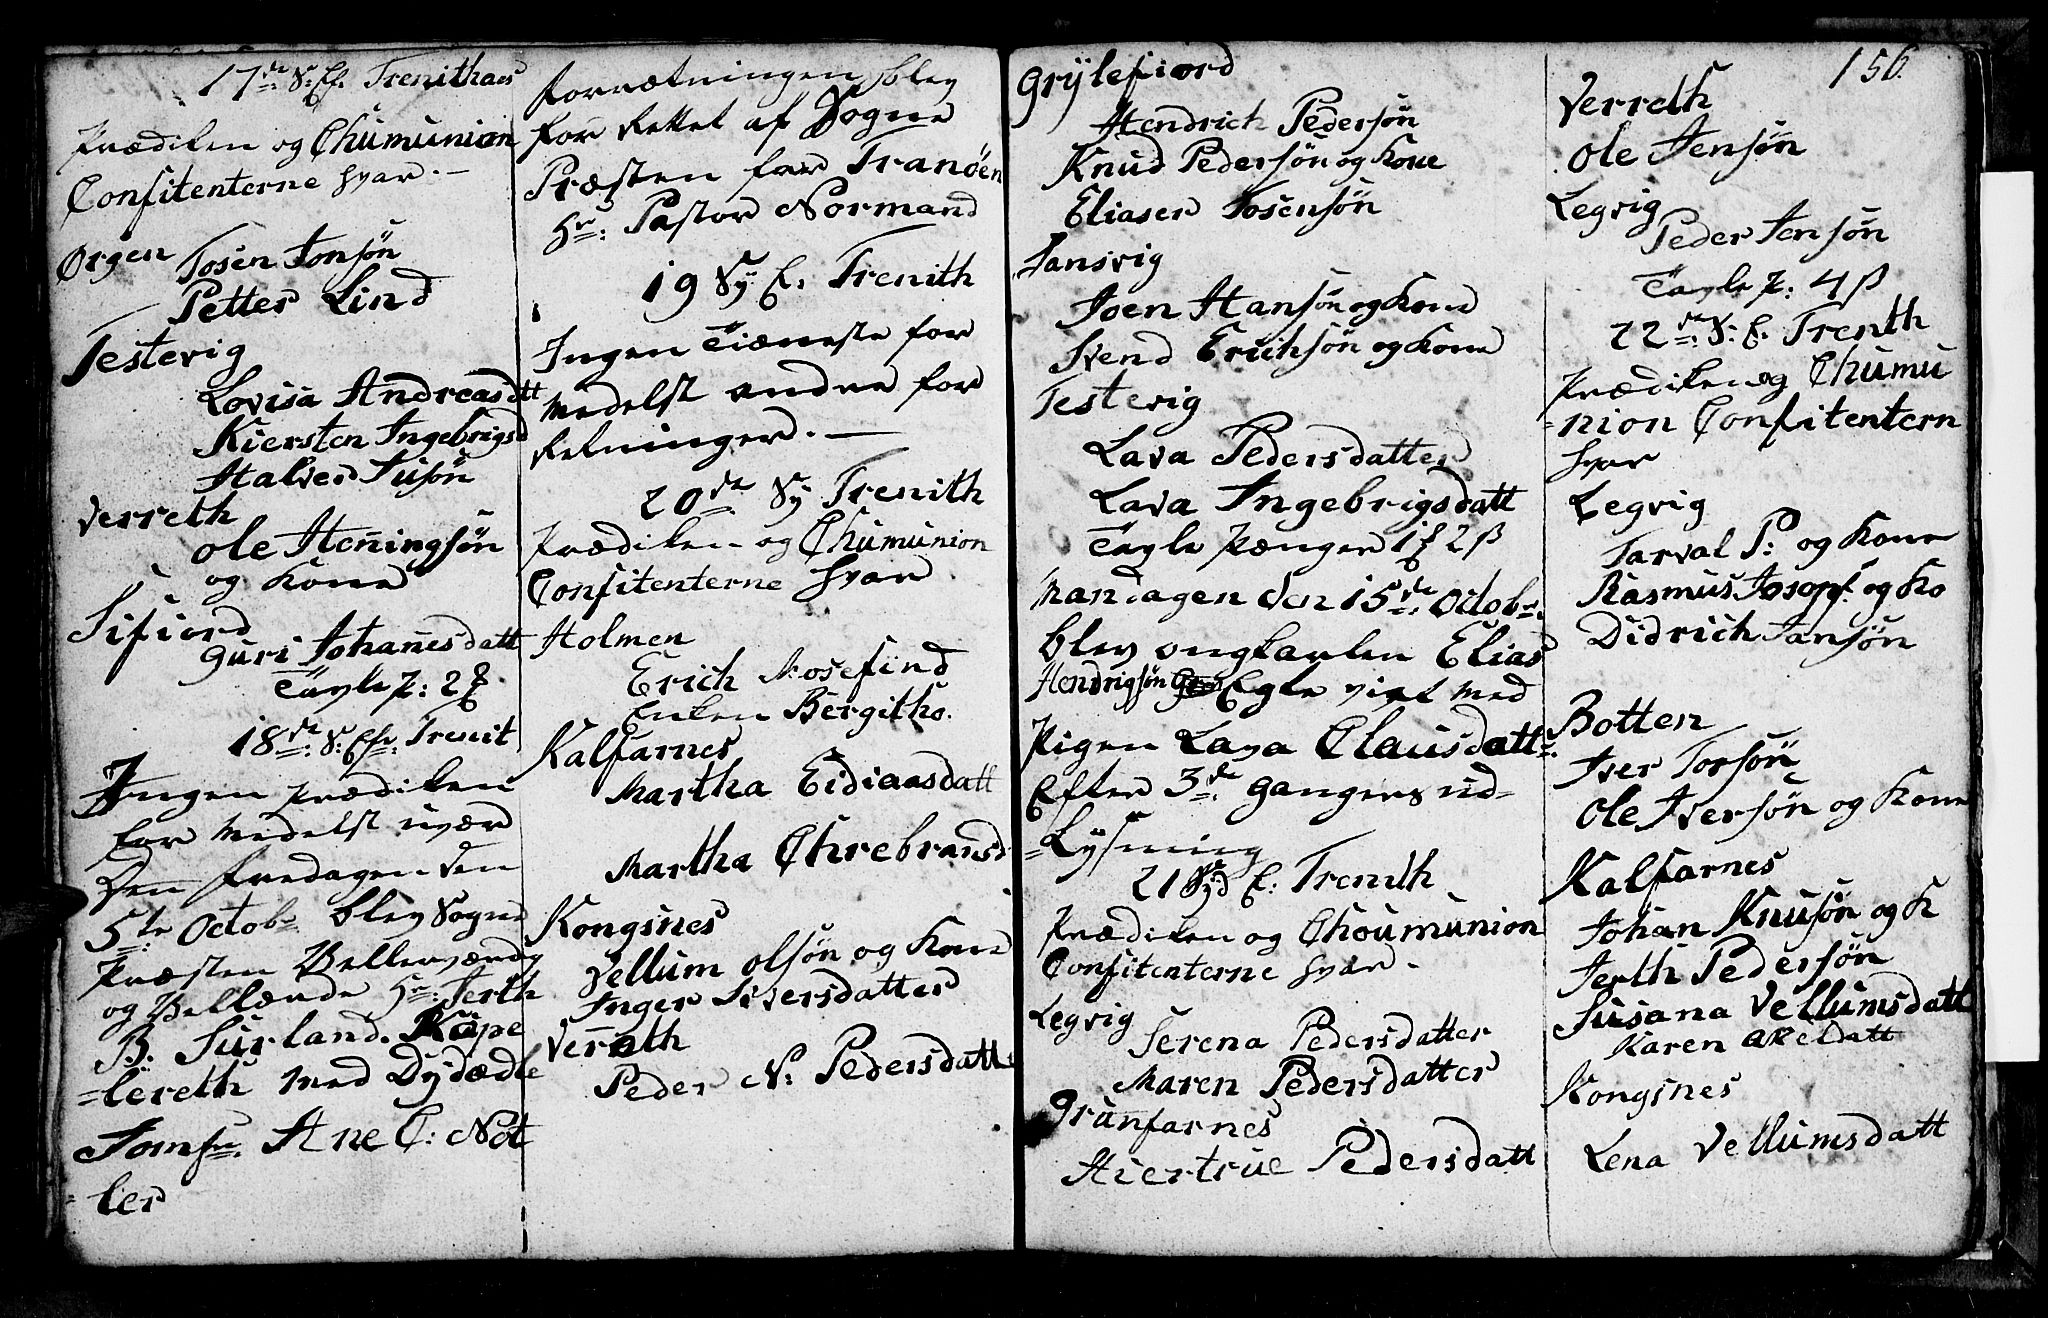 17de S: Ef. Trenithaes
Prædiken og Chumunion
Confitenterne hvar. —
Ørgen
Tosen Jonsøn
Petter Lind
Testevig
Lovisa Andreasdtt
Kiersten Ingebrigsd
Halver Susøn
Verreth
Ole Heningsøn
og Kone
Sifiord
Guri Johanesdatt
Tavle p: 2
18de S: Efr. Trenit
Ingen Prædiken
for medelst uvær
Den fredagen den
5te Octobr blev Sogne
Præsten Vellerværdy
og Vellærde Hr: Jerth
B. Surland. Kope
=lereth med Dydædle
Jomfr. Ane C: Not
=ler
forretningen blev
for Rettet af Sogne
Præsten for Tranöen
Hr: Pastor Normand
19 Sy E: Trenith
Ingen Tiæneste for
medelst andre for
Retninger. —
20de Sy Trenith
Prædiken og Chumunion
Confitenterne hvar
Holmen
Erich Mosefind
Enken Bergitho.
Kalfarnes
Martha Eidiaasdatt
Martha Chrebransd
Kongsnes
Vellum Olsøn og Kone
Inger Iversdatter
Verreth
Peder N: Pedersdatt
Grÿlefiord
Hendrich Pedersøn
Knud Pedersøn og Kone
Eliaser Tosensøn
Jansvig
Joen Hansøn og Kone
Svend Erichsøn og Kone
Testevig
Lava Pedersdatter
Lava Ingebrigsdatt
Tavle Pænger 1 2 ß
Mandagen den 15de Octobr.
blev ongkarlen Elias
Hendrigsøn Egte viet med
Pigen Lava Clausdatt:
Efter 3de Gangers ud=
=Lysning
21 Syd E: Trenith
Prædiken og Choumunion
Confitenterne hvar.
Legvig
Serena Pedersdatter
Maren Pedersdatter
Grunfarnes
Hiertrue Pedersdatt
156.
Verreth
Ole Jensøn
Legvig
Peder Jensøn
Tavle p: 4 ß
22de S: E: Trenth
Prædiken og Chumu
=nion Confitentern
hvar
Legvig
Tarval P: og Kone
Rasmus Josopf. og Ko
Didrich Jansøn
Botten
Iver Torsøn
Ole Iversøn og Kone
Kalfarnes
Johan Knusøn og K
Jerth Pedersøn
Susana Vellumsdatt
Karen Akeldatt
Kongsnes
Lena Vellumsdatt